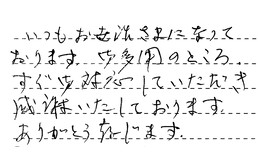 いつもお世話さまになって
おります。御多用のところ、
すぐ御対応していただき
感謝いたしております。
ありがとう存じます。